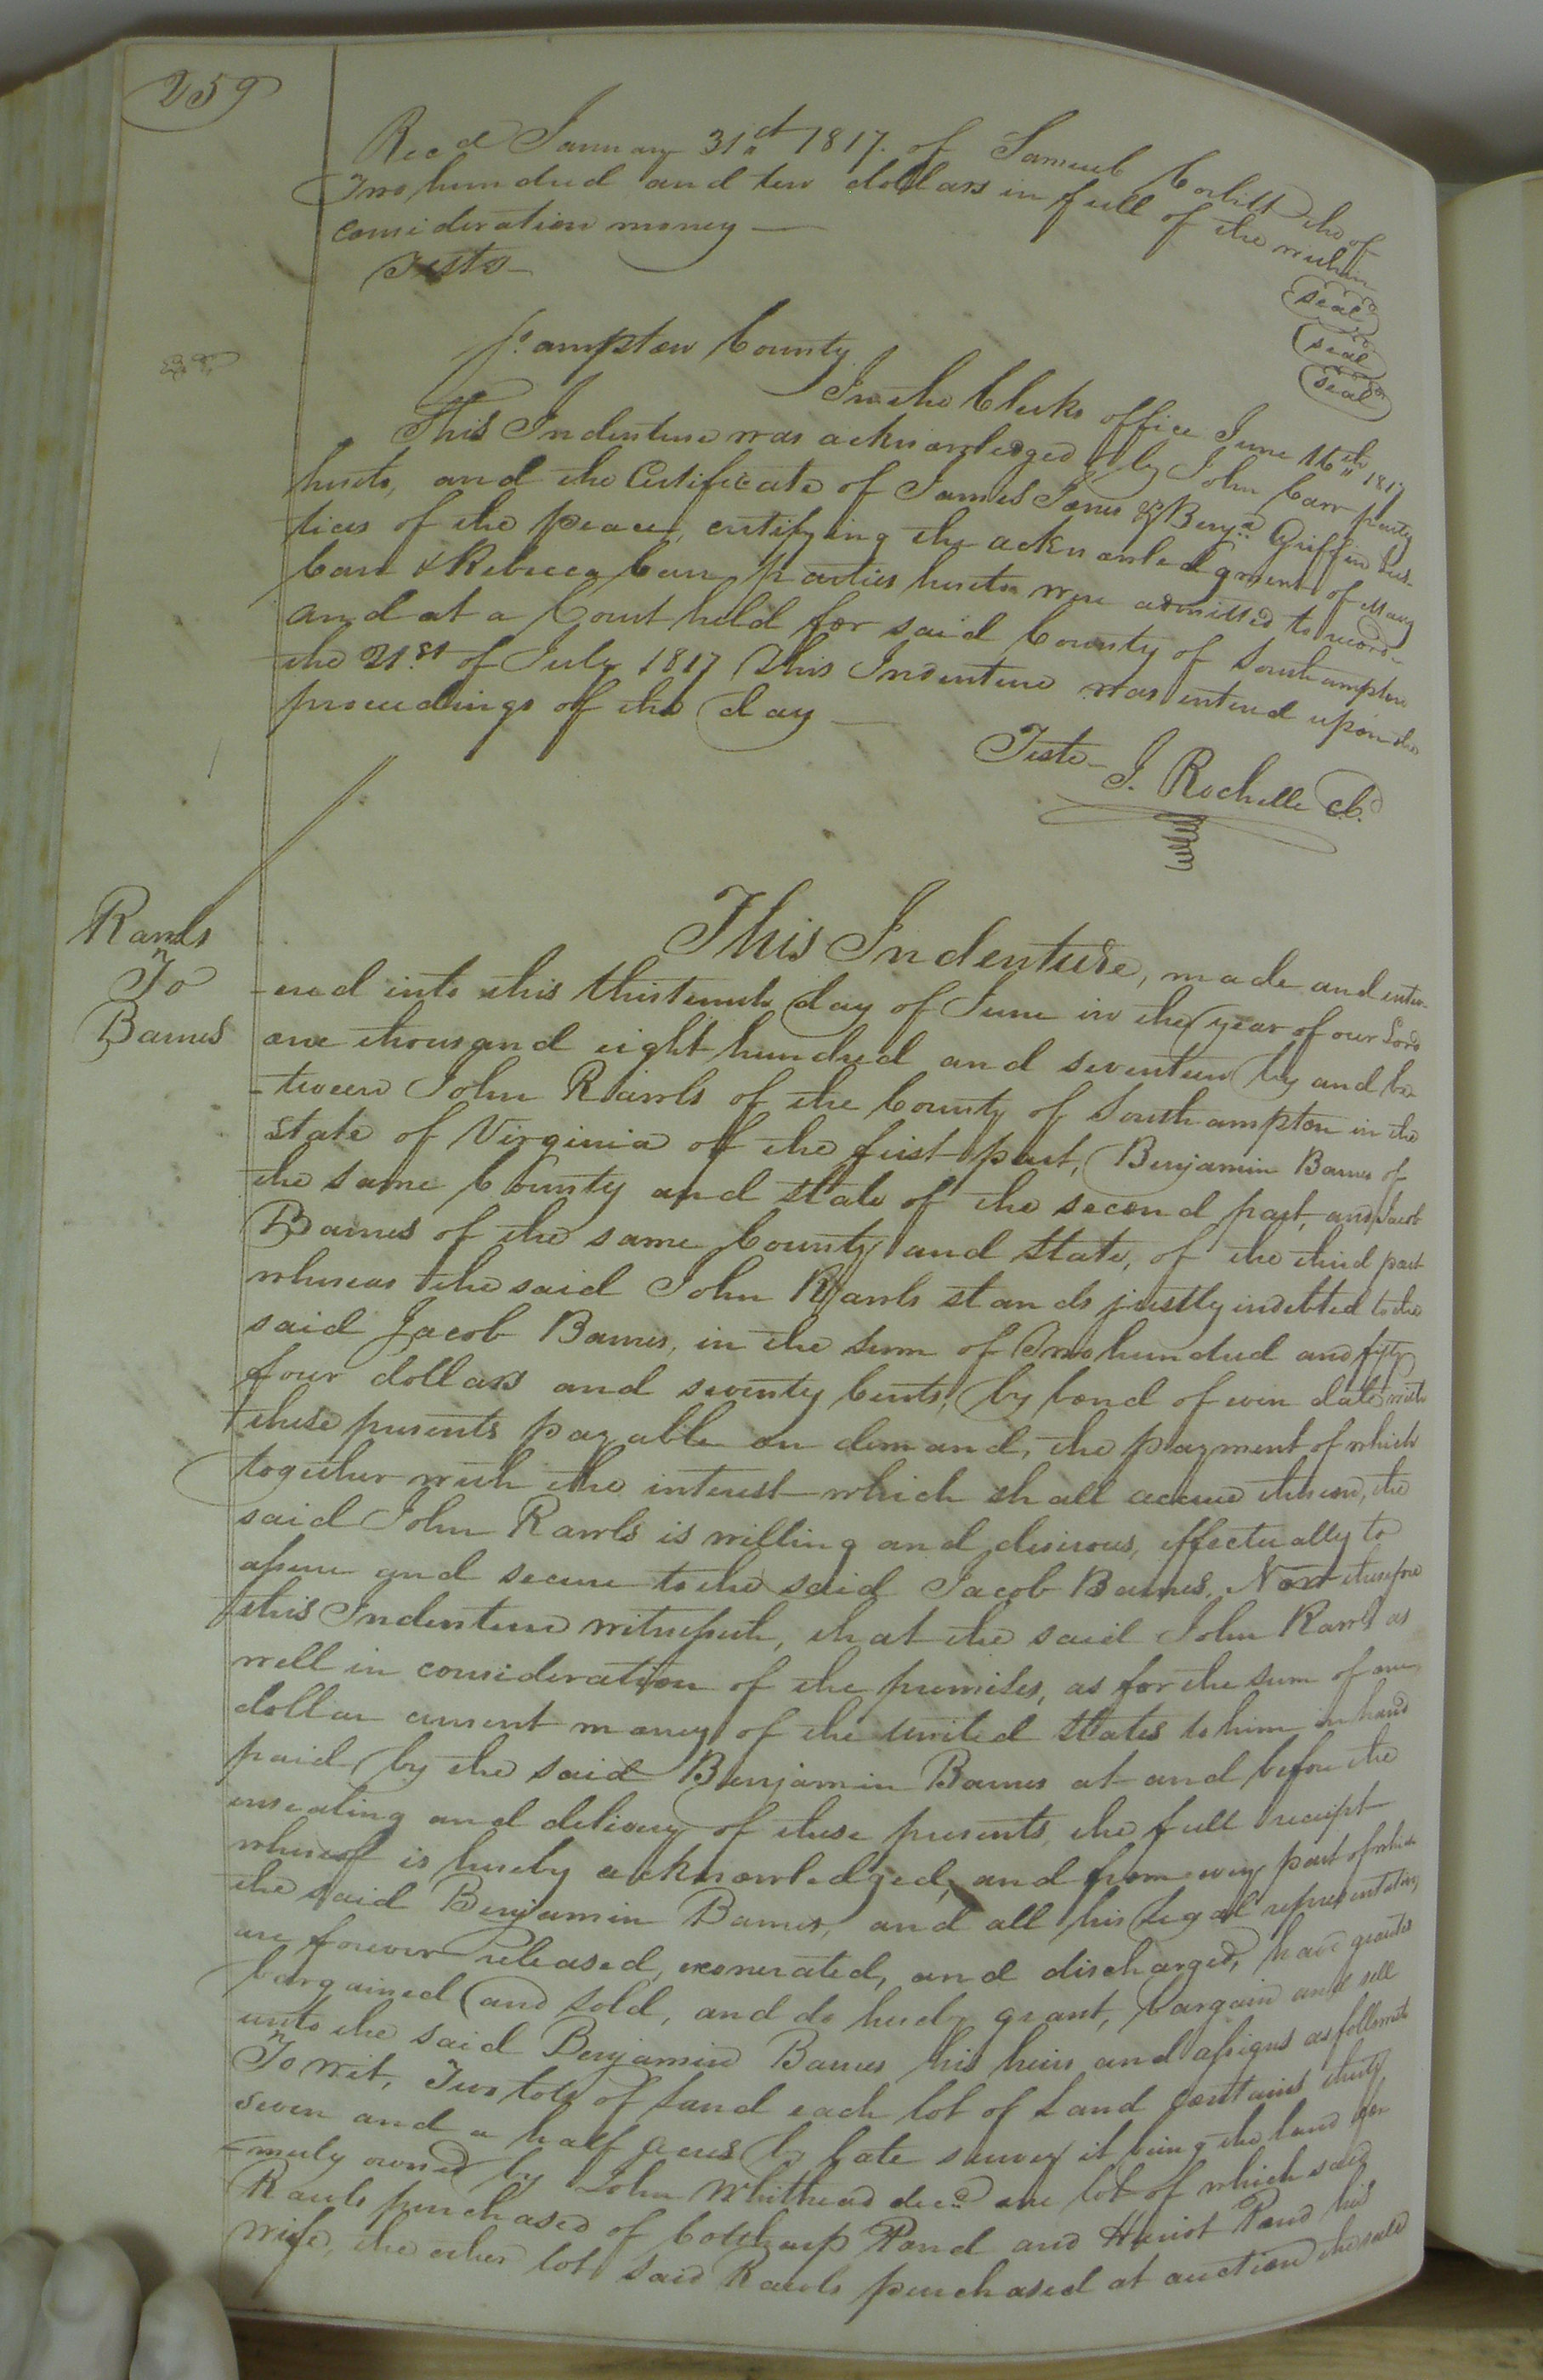 259
Recd January 31st 1817. of Samuel Corbitt the of
Two hundred and ten dollars in full of the within
consideration money —
Teste —
seal
seal
seal
So.ampton County
In the Clerks office June 16th 1817
This Indenture was acknowledged by John Carr party
hereto, and the Certificate of James Jones & Benja. Griffin Jus-
tices of the peace, certifying the acknowledgment of Mary
Carr & Rebecca Carr parties hereto were admitted to record-
and at a Court held for said County of Southampton
the 21st of July 1817 This Indenture was entered upon the
proceedings of the day —
Teste — J. Rochelle Cl.
Rawls
To
Barnes
This Indenture, made and enter-
-ered into this thirteenth day of June in the year of our Lord
one thousand eight hundred and seventeen by and be-
-tween John Rawls of the County of Southampton in the
state of Virginia of the first part, Benjamin Barnes of
the same County and state of the second part, and Jacob
Barnes of the same County and State, of the third part
whereas the said John Rawls stands justly indebted to the
said Jacob Barnes, in the sum of Two hundred and fifty
four dollars and seventy Cents, by bond of even date with
these presents payable on demand, the payment of which
together with the interest which shall accrue thereon, the
said John Rawls is willing and desirous, effectually to
assure and secure to the said Jacob Barnes. Now therefore
this Indenture witnesseth, that the said John Rawls as
well in consideration of the premises, as for the sum of one
dollar current money of the United States to him in hand
paid by the said Benjamin Barnes at and before the
ensealing and delivery of these presents, the full receipt
whereof is hereby acknowledged, and from every part of which
the said Benjamin Barnes, and all his legal representatives
are forever released, exonerated, and discharged, have granted
bargained and sold, and do hereby grant, bargain and sell
unto the said Benjamin Barnes his heirs and assigns as follows
To wit, Two lots of land each lot of Land contains thirty
seven and a half acres by late survey it being the land for-
-merly owned by John Whithead decd. one lot of which said
Rawls purchased of Pond and Hariot Pond his
wife, the other lot said Rawls purchased at auction the said